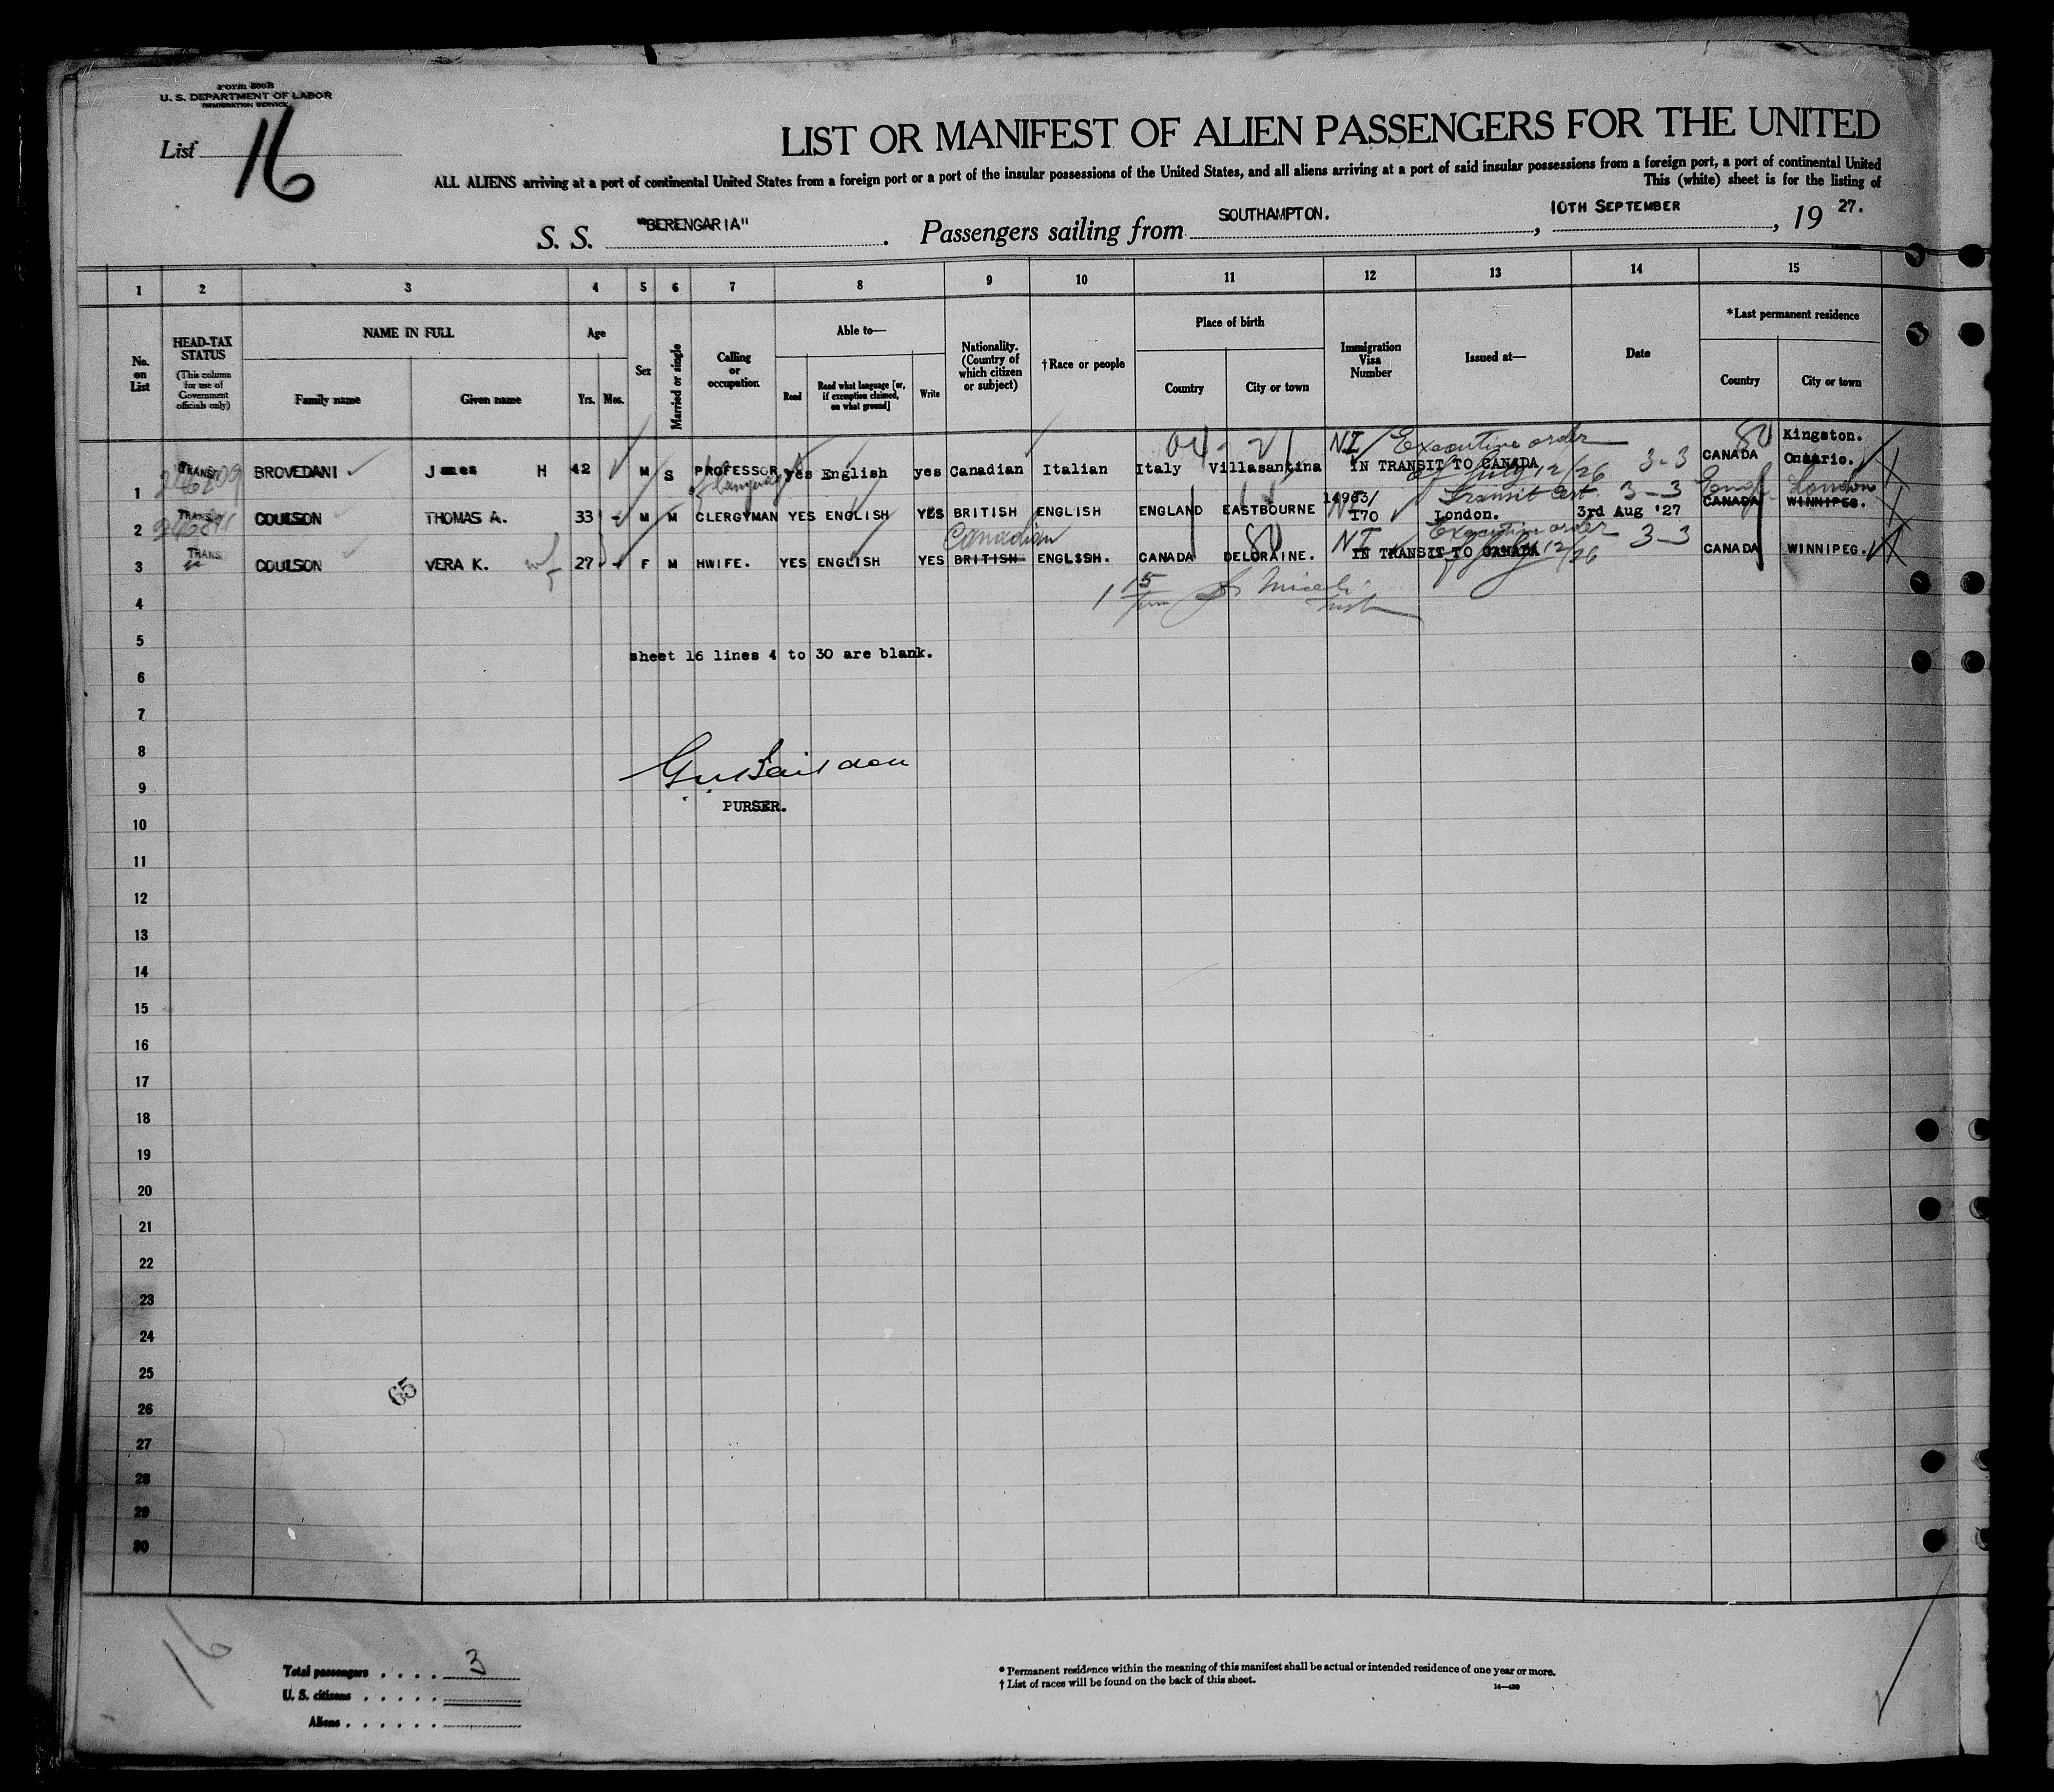 Form 500B
U. S. DEPARTMENT OF LABOR
IMMIGRATION SERVICE
List 16
LIST OR MANIFEST OF ALIEN PASSENGERS FOR THE UNITED
ALL ALIENS arriving at a port of continental United States from a foreign port or a port of the insular possessions of the United States, and all aliens arriving at a port of said insular possessions from a foreign port, a port of continental United
This (white) sheet is for the listing of
S. S. "BERENGARIA". Passengers sailing from SOUTHAMPTON., 10TH SEPTEMBER, 19 27.
1 2 3 4 5 6 7 8 9 10 11 12 13 14 15
No. on List
HEAD-TAX STATUS
(This column for use of Government officials only)
NAME IN FULL
Family name Given name
Age
Yrs. Mos.
Sex
Married or single
Calling or occupation
Able to—
Read Read what language [or, if exemption claimed, on what ground] Write
Nationality. (Country of which citizen or subject)
†Race or people
Place of birth
Country City or town
Immigration Visa Number
Issued at—
Date
*Last permanent residence
Country City or town
NI Executive order of July 12/26 3-3 80
1 TRANS. BROVEDANI James H 42 M S PROFESSOR languages yes English yes Canadian Italian Italy Villasantina IN TRANSIT TO CANADA CANADA Kingston. Ontario.
Transit Cert. 3-3 London
2 TRANS. COULSON THOMAS A. 33 - M M CLERGYMAN YES ENGLISH YES BRITISH ENGLISH ENGLAND EASTBOURNE 14963/170 London. 3rd Aug '27 CANADA WINNIPEG.
Canadian 80 NI Executive order of July 12/26 3-3
3 TRANS. COULSON VERA K. 27 - F M HWIFE. YES ENGLISH YES BRITISH ENGLISH. CANADA DELORAINE. IN TRANSIT TO CANADA CANADA WINNIPEG.
4
5
sheet 16 lines 4 to 30 are blank.
6
7
8
9
PURSER.
10
11
12
13
14
15
16
17
18
19
20
21
22
23
24
25
65
26
27
28
29
30
16
Total passengers . . . . 3
U. S. citizens . . . . .
Aliens . . . . . .
* Permanent residence within the meaning of this manifest shall be actual or intended residence of one year or more.
† List of races will be found on the back of this sheet.